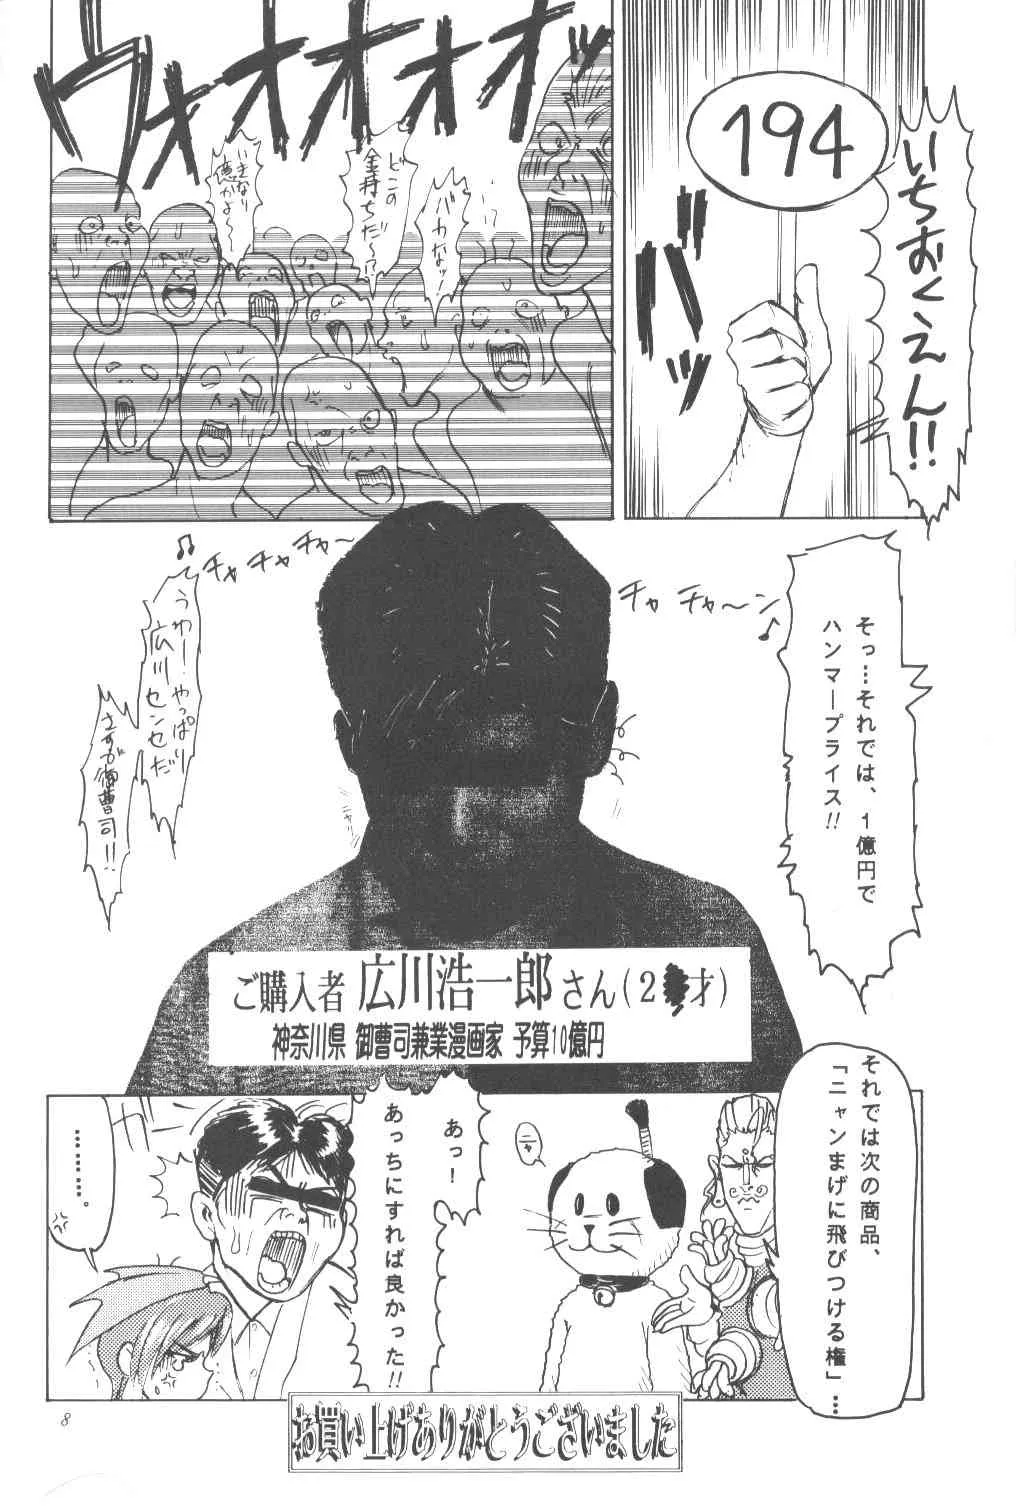 いちおくえん!!
194
バッ
ウォオオオオッ
バカなッ!
どこの
金持ちだ〜!?
いきなり
億かよ〜
そっ…それでは、1億円で
ハンマープライス!!
チャチャ〜ン♪
チャチャチャ〜♪
うわー!やっぱり
広川センセだ
さすが御曹司!!
ご購入者 広川浩一郎さん(2 才)
神奈川県 御曹司兼業漫画家 予算10億円
それでは次の商品、
「ニャンまげに飛びつける権」…
ニャ
あっ!
あっちにすれば良かった!!
………。
お買い上げありがとうございました
8